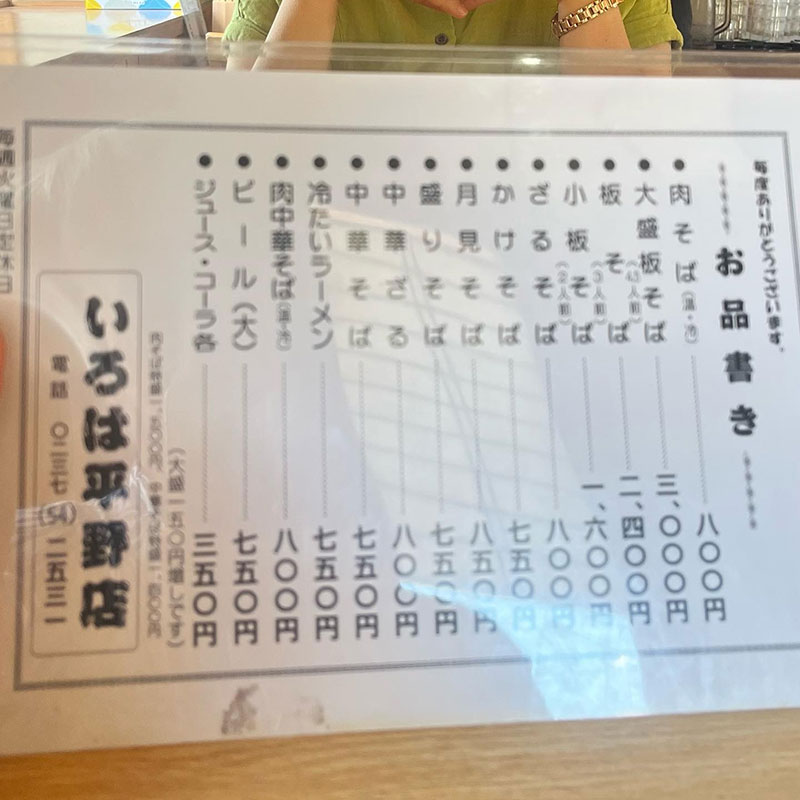 毎度ありがとうございます。
お品書き
●肉そば(温・冷) 八〇〇円
●大盛板そば(4人前) 三、〇〇〇円
●板そば(3人前) 二、四〇〇円
●小板そば(2人前) 一、六〇〇円
●ざるそば 八〇〇円
●かけそば 七五〇円
●月見そば 八五〇円
●盛りそば 七五〇円
●中華ざる 八〇〇円
●中華そば 七五〇円
●冷たいラーメン 七五〇円
●肉中華そば(温・冷) 八〇〇円
●ビール(大) 七五〇円
●ジュース・コーラ各 三五〇円
(大盛一五〇円増しです)
いろは平野店
電話 〇二三七(54)二五三一
毎週火曜日定休日